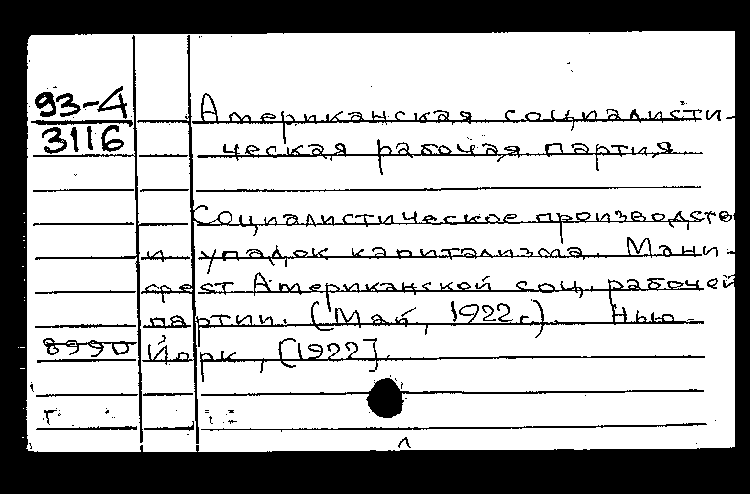 93-4
3116
Американская социалисти-
ческая рабочая партия
Социалистическое производство
и упадок капитализма. Мани-
фест Американской соц. рабочей
партии. (Май, 1922 г.). Нью-
8990 Йорк, [1922].